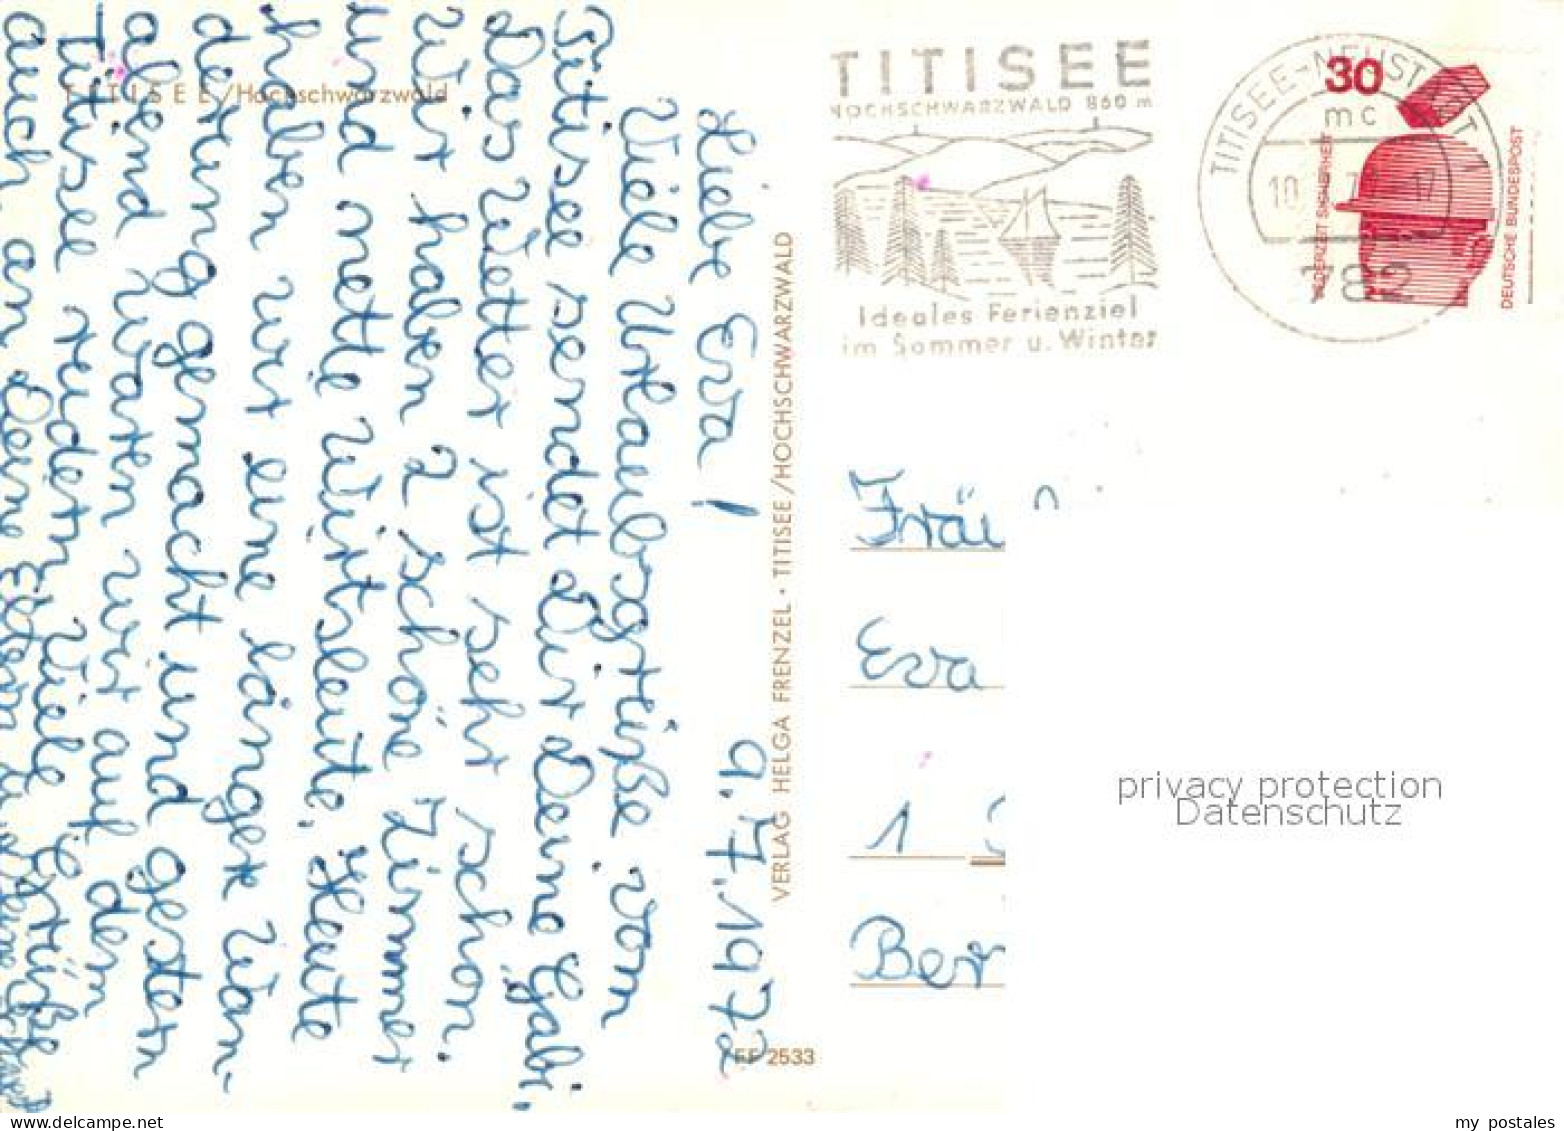 TITISEE/Hochschwarzwald
9.7.1972
Liebe Eva!
Viele Urlaubsgrüße vom
Titisee sendet Dir Deine Gabi.
Das Wetter ist sehr schön.
Wir haben 2 schöne Zimmer
und nette Wirtsleute. Heute
haben wir eine längere Wan-
derung gemacht und gestern
abend waren wir auf dem
Titisee rudern. Viele Grüße
auch an Deine Eltern
VERLAG HELGA FRENZEL · TITISEE/HOCHSCHWARZWALD
FF 2533
TITISEE
HOCHSCHWARZWALD 860 m
Ideales Ferienziel
im Sommer u. Winter
TITISEE-NEUSTADT 1
mc
782
30
JEDERZEIT SICHERHEIT
DEUTSCHE BUNDESPOST
Fräu
Eva
1
Ber
privacy protection
Datenschutz
my postales